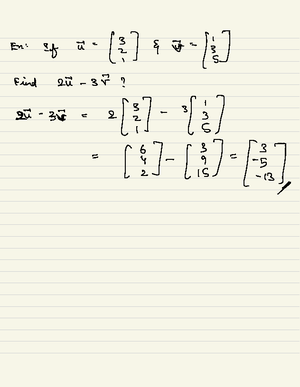 En: If u⃗ = [3 2 1] & v⃗ = [1 3 5]
Find 2u⃗ - 3v⃗ ?
2u⃗ - 3v⃗ = 2 [3 2 1] - 3 [1 3 5]
= [6 4 2] - [3 9 15] = [3 -5 -13]